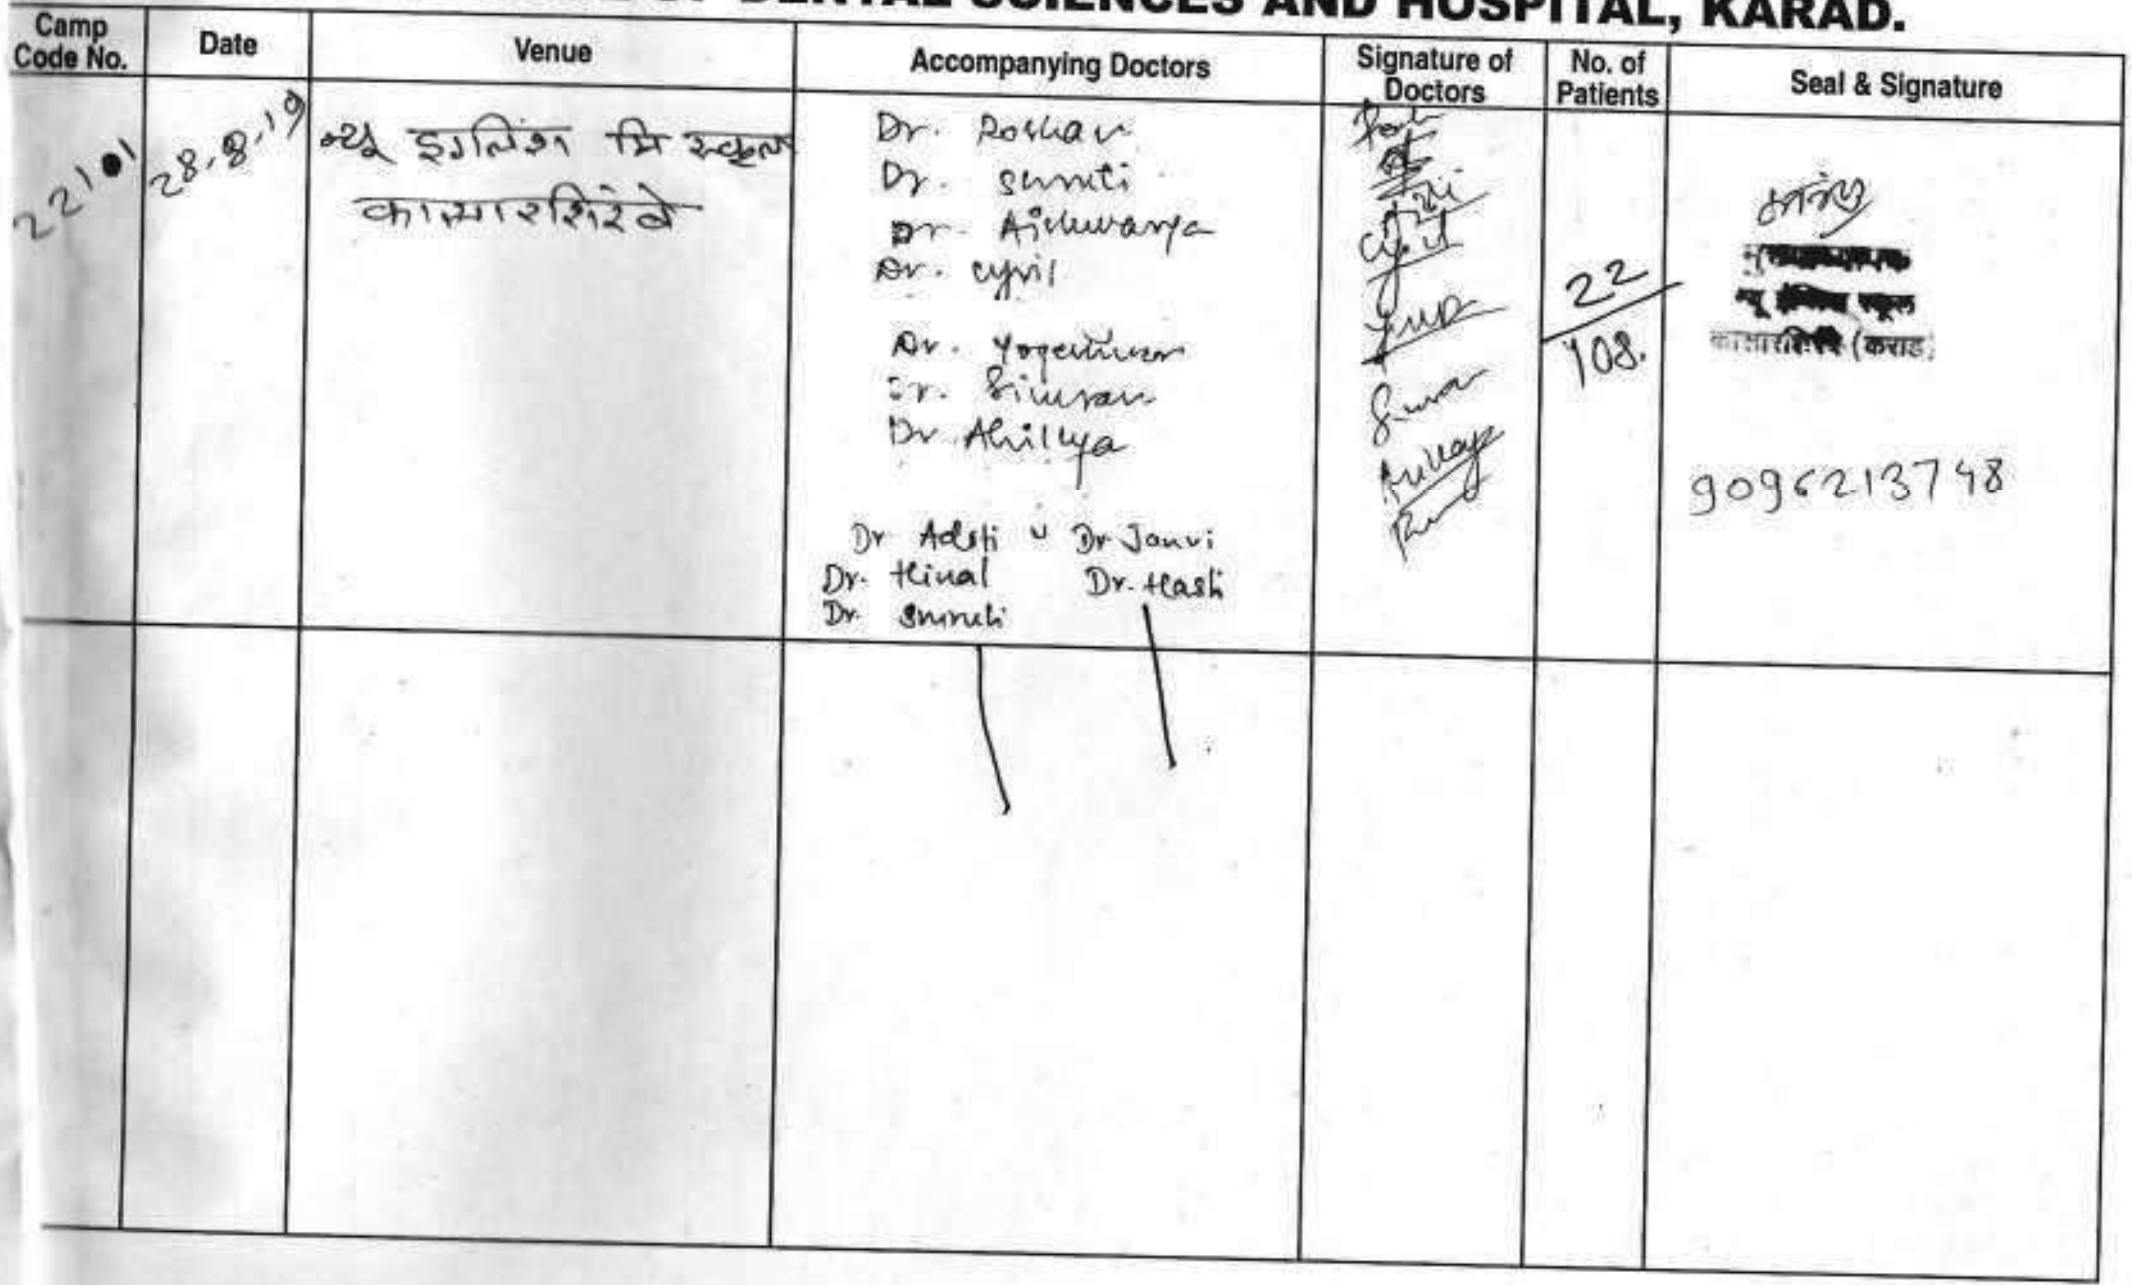 OF DENTAL SCIENCES AND HOSPITAL, KARAD.
Camp Code No.
Date
Venue
Accompanying Doctors
Signature of Doctors
No. of Patients
Seal & Signature
28.8.19
न्यू इंग्लिश स्कूल
कासारशिरंबे
Dr. Roshan
Dr. Smruti
Dr. Aishwarya
Dr. Cyril
Dr. Yogeshwar
Dr. Simran
Dr. Ahillya
Dr Aditi Dr Janvi
Dr. Hinal Dr. Hasti
Dr. Smruti
22
108.
न्यू स्कूल
(कराड)
9096213748